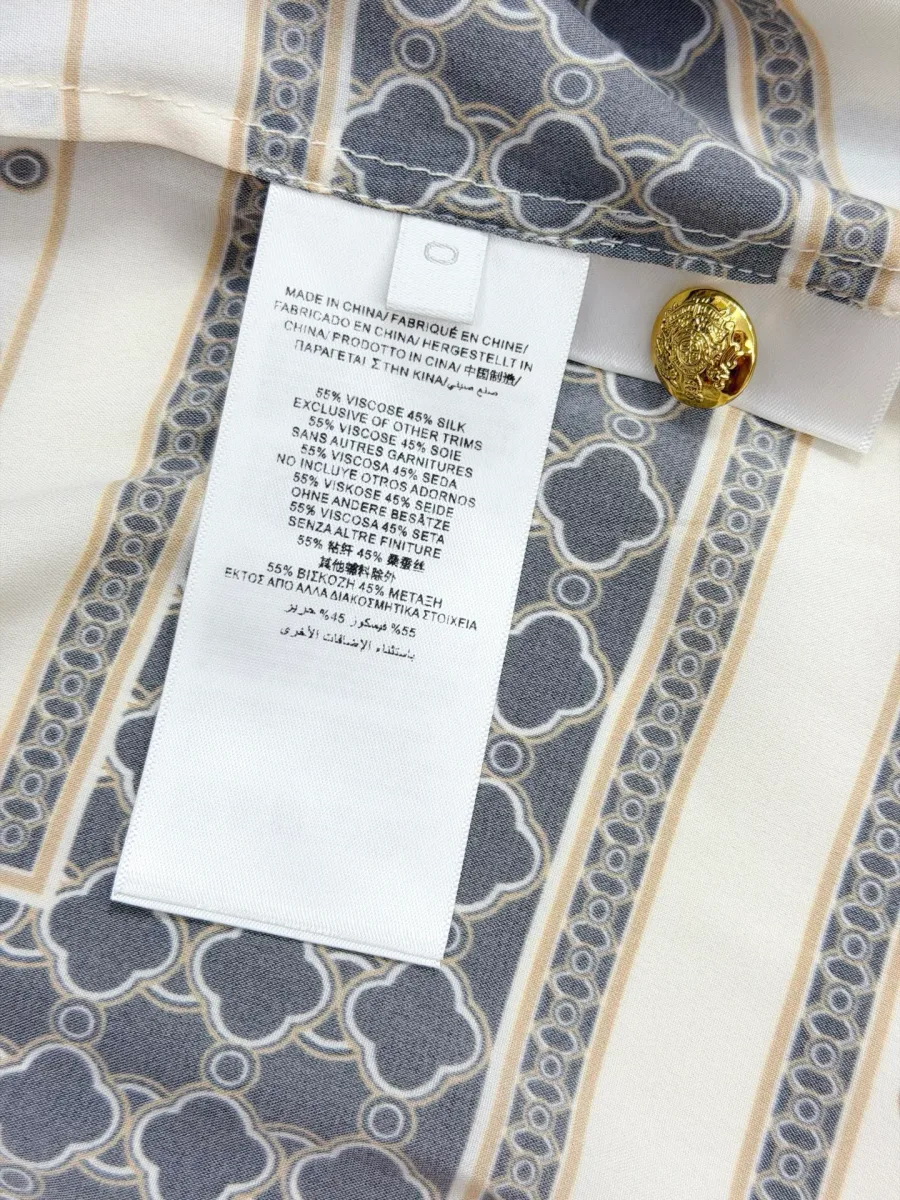 0
MADE IN CHINA/ FABRIQUÉ EN CHINE/
FABRICADO EN CHINA/ HERGESTELLT IN
CHINA/ PRODOTTO IN CINA/ 中国制造/
ΠΑΡΑΓΕΤΑΙ ΣΤΗΝ ΚΙΝΑ/صنع صيني
55% VISCOSE 45% SILK
EXCLUSIVE OF OTHER TRIMS
55% VISCOSE 45% SOIE
SANS AUTRES GARNITURES
55% VISCOSA 45% SEDA
NO INCLUYE OTROS ADORNOS
55% VISKOSE 45% SEIDE
OHNE ANDERE BESÄTZE
55% VISCOSA 45% SETA
SENZA ALTRE FINITURE
55% 粘纤 45% 桑蚕丝
其他辅料除外
55% ΒΙΣΚΟΖΗ 45% ΜΕΤΑΞΗ
ΕΚΤΟΣ ΑΠΟ ΑΛΛΑ ΔΙΑΚΟΣΜΗΤΙΚΑ ΣΤΟΙΧΕΙΑ
55% فيسكوز 45% حرير
باستثناء الإضافات الأخرى